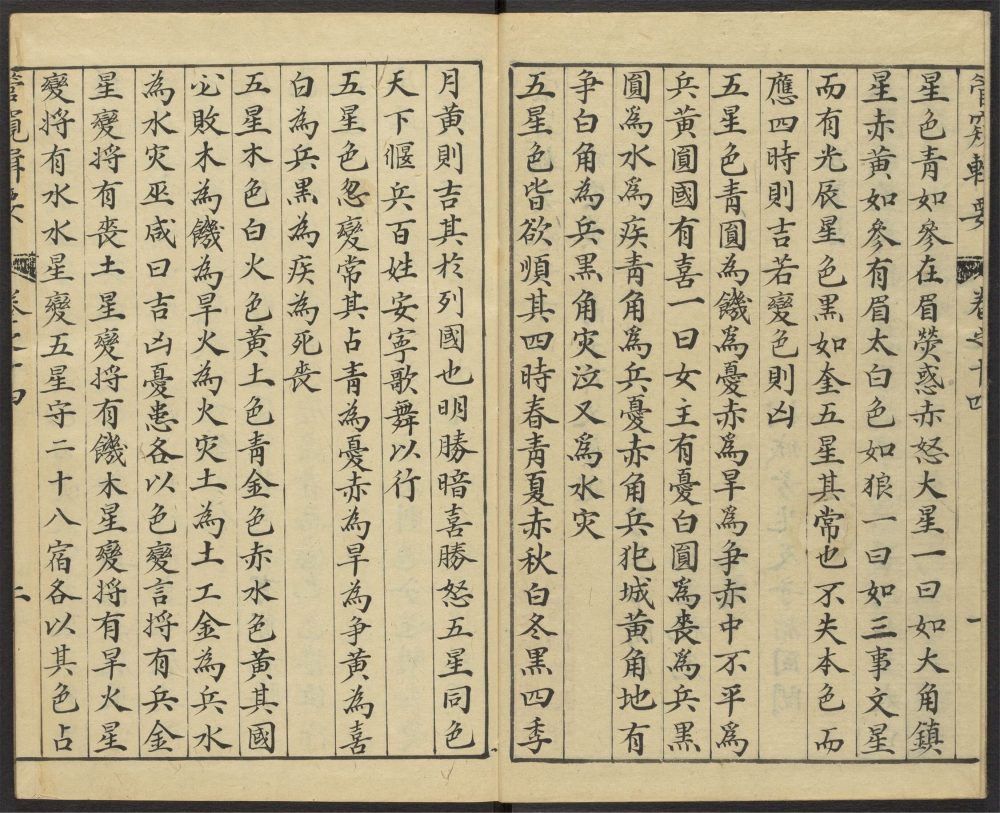 管窺輯要 卷之十四 一
星色青如參在眉熒惑赤怒大星一曰如大角鎮
星赤黃如參有眉太白色如狼一曰如三事文星
而有光辰星色黑如奎五星其常也不失本色而
應四時則吉若變色則凶
五星色青圓為饑為憂赤為旱為爭赤中不平為
兵黃圓國有喜一曰女主有憂白圓為喪為兵黑
圓為水為疾青角為兵憂赤角兵犯城黃角地有
爭白角為兵黑角灾泣又為水灾
五星色皆欲順其四時春青夏赤秋白冬黑四季
月黃則吉其於列國也明勝暗喜勝怒五星同色
天下偃兵百姓安寧歌舞以行
五星色忽變常其占青為憂赤為旱為爭黃為喜
白為兵黑為疾為死喪
五星木色白火色黃土色青金色赤水色黃其國
必敗木為饑為旱火為火灾土為土工金為兵水
為水灾巫咸曰吉凶憂患各以色變言將有兵金
星變將有喪土星變將有饑木星變將有旱火星
變將有水水星變五星守二十八宿各以其色占
管窺輯要 卷之十四 二